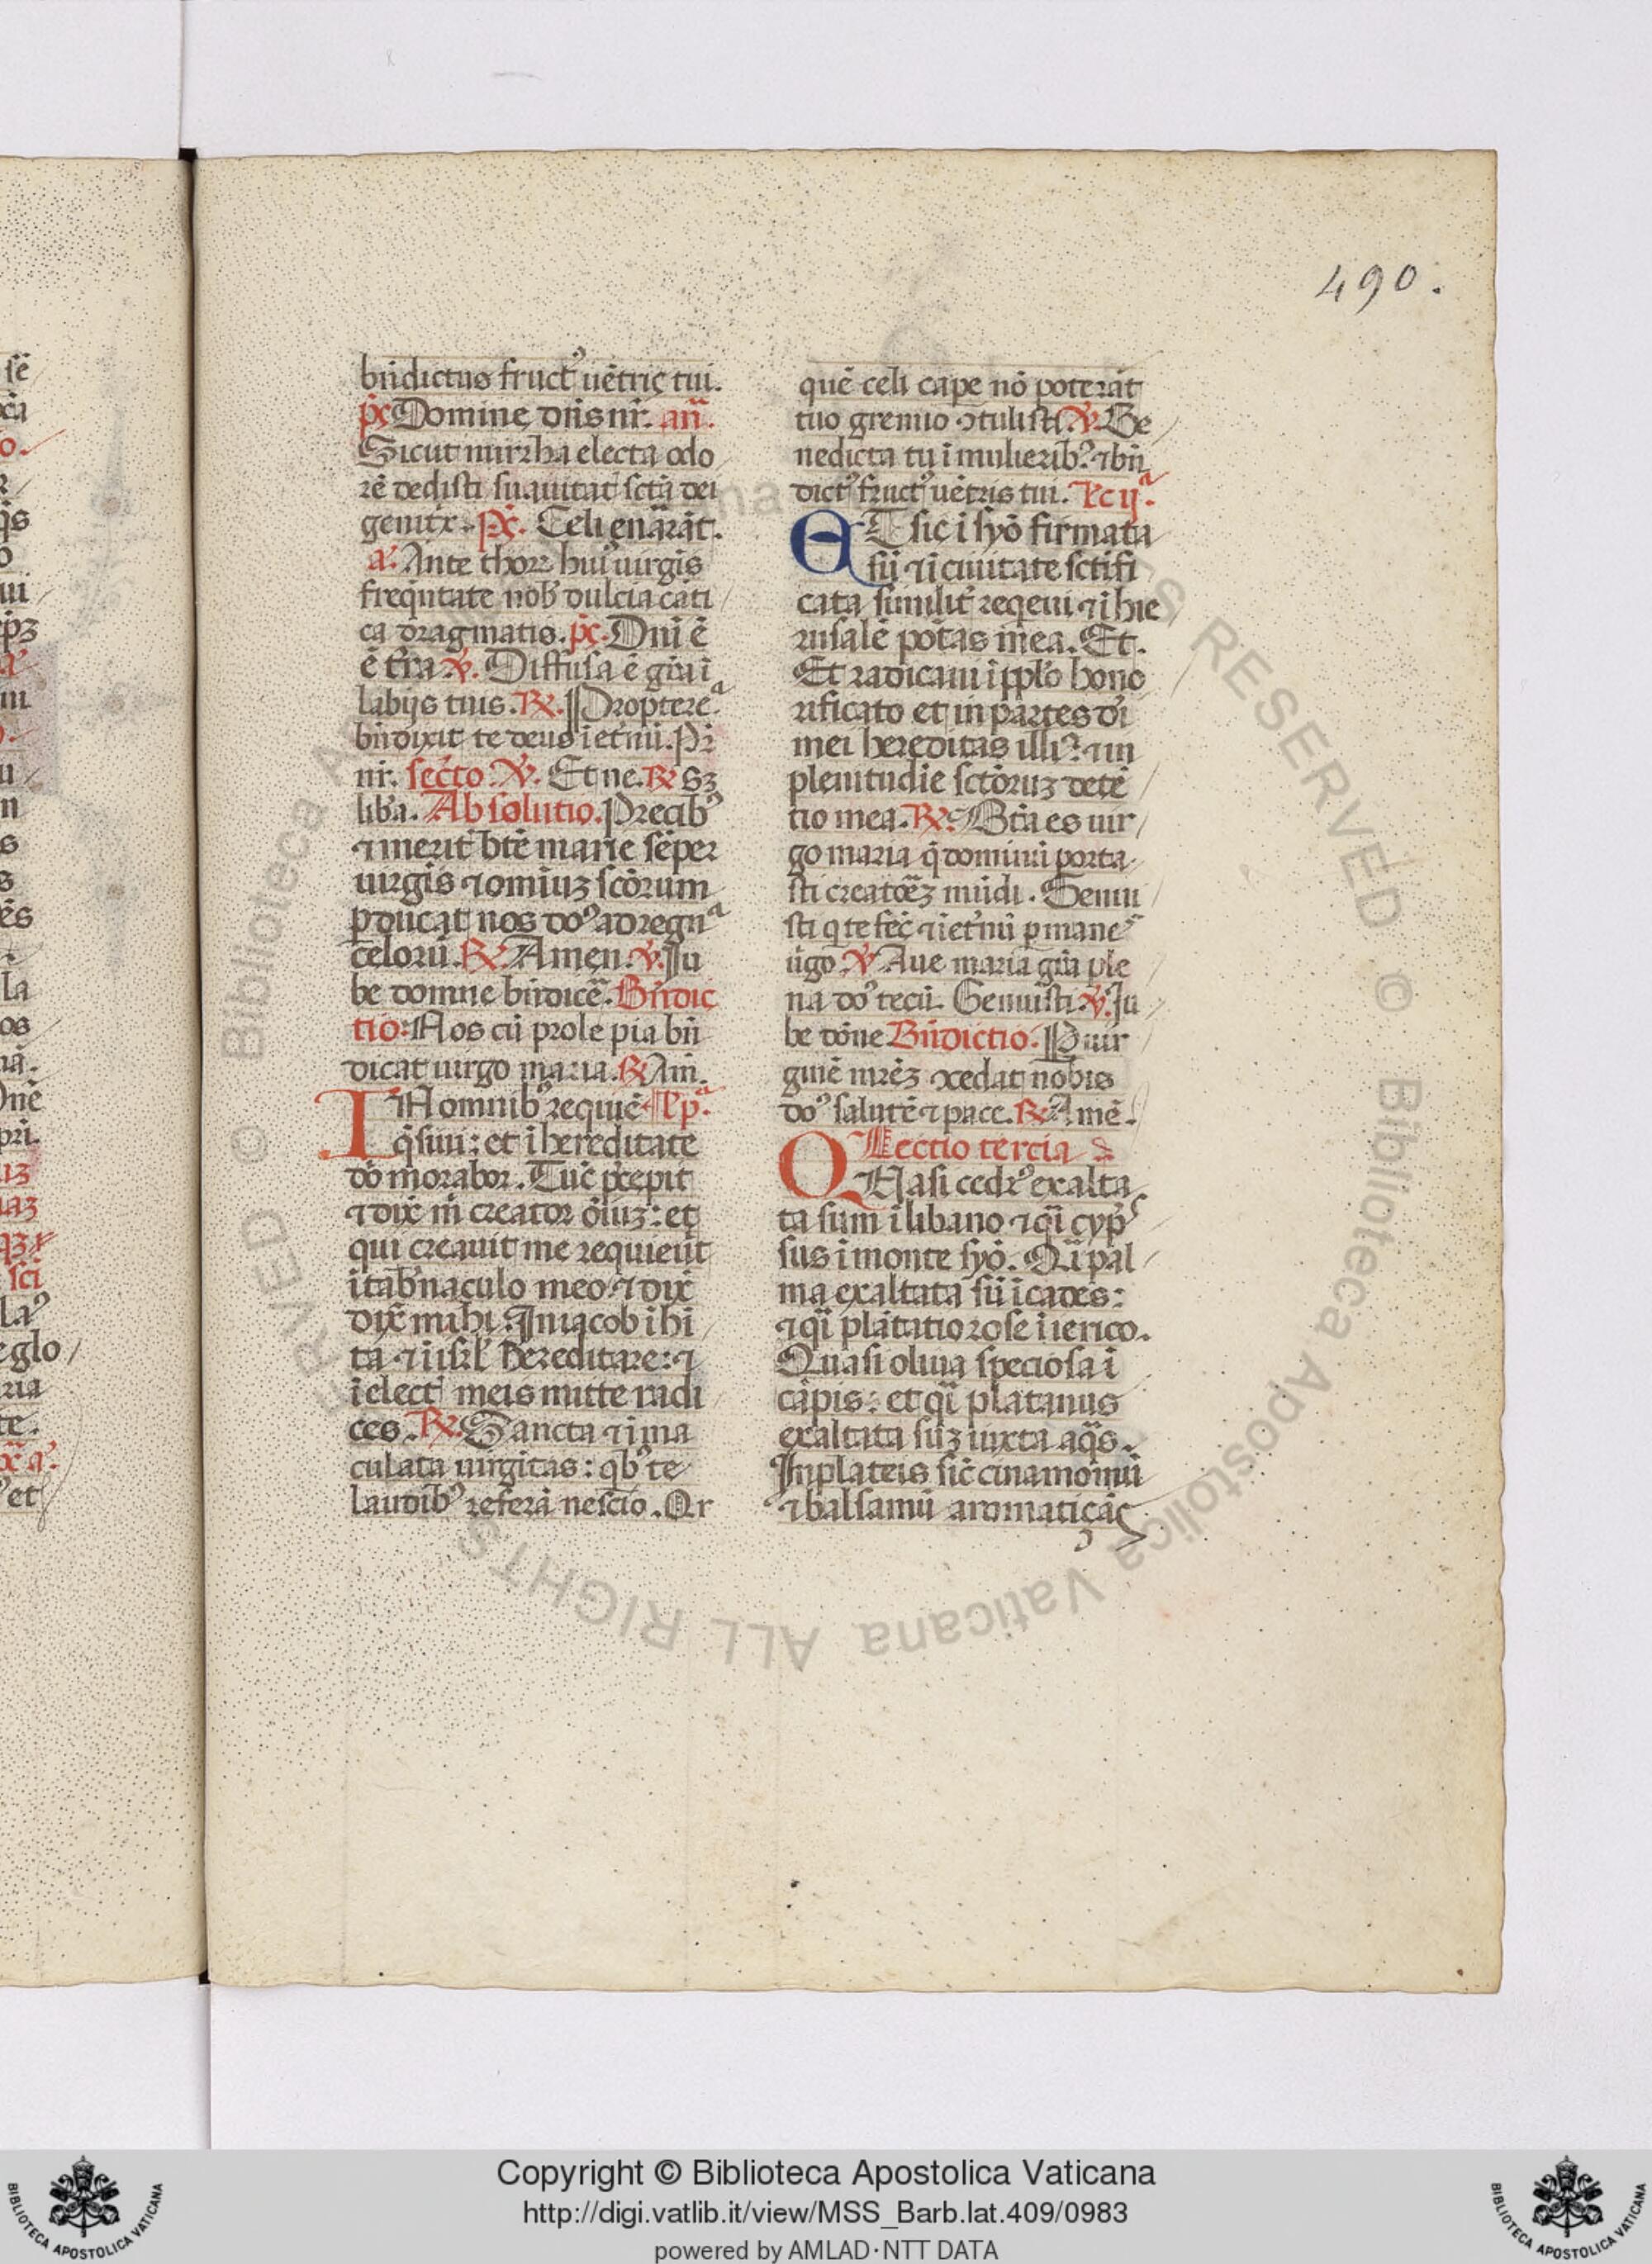 490.
bn̄dictus fruct᷒ uētris tui.
p̄s Domine dn̄s nr̄. an̄.
Sicut mirrha electa odo
rē dedisti suauitat᷒ sctā dei
genitx. Ps̄. Celi enarrāt.
a᷒. Ante thorꝝ hui᷒ uirgīs
freqūtate nob᷒ dulcia cāti
ca dragmatis. ps̄. Dnī ē
ē tr̄a ℣. Diffusa ē grā ī
labijs tuis. ℟. Propterea
bn̄dixit te deus ī et᷒nū. Pr̄
nr̄. secto. ℣. Et ne. ℟ Sꝫ
liba. Absolutio. Precib᷒
⁊ merit᷒ btē marie sēper
uirgīs ⁊ omiuꝫ scōrum
ꝑducat nos do᷒ ad regna
celorū. ℟. Amen. ℣. Ju
be domne bn̄dicē. Bn̄dic
tio: Nos cū prole pia bn̄
dicat uirgo maria. ℟ Am̄.
IN omnib᷒ requiē Lc̄ pᵃ.
q̄siui: et ī hereditate
dō morabor. Tūc p̄cepit
⁊ dix̄ m̄ creator ōiuꝫ: et
qui creauit me requieuit
ī tab᷒naculo meo ⁊ dix̄
dix̄ mihi. In iacob īhi
ta ⁊ ī isrl᷒ hereditare: ⁊
ī elect᷒ meis mitte radi
ces. ℟. Sancta ⁊ ima
culata uirgitas: qb᷒ te
laudib᷒ referā nescio. Qr
quē celi cape nō poterāt
tuo gremio ↄtulisti ℣. Be
nedicta tu ī mulierib᷒ ⁊ bn̄
dict᷒ fruct᷒ uētris tui. Lc̄ ijᵃ.
ET sic ī syō firmata
sū ⁊ ī ciuitate sctifi
cata similit᷒ reqeui ⁊ ī hie
rusalē potas mea. Et.
Et radicaui ī pplo hono
rificato et in partes dī
mei hereditas illi᷒ ⁊ in
plenitudīe sctōruꝫ detē
tio mea. ℟. Btā es uir
go maria q̄ dominū porta
sti creatorēꝫ mūdi. Genui
sti q te fec̄ ⁊ ī et᷒nū ꝑmanes
ūgo ℣ Aue maria grā ple
na do᷒ tecū. Genuisti ℣. Ju
be dōne Bn̄dictio. P uir
ginē mrēꝫ ↄcedat nobis
do᷒ salutē ⁊ pace. ℟ Amē.
Lectio tercia
QUasi cedr᷒ exalta
ta sum ī libano ⁊ qī cyp̄
sus ī monte syō. Qī pal
ma exaltata sū ī cades:
⁊ qī plātatio rose ī ierico.
Quasi oliua speciosa ī
cāpis: et qī platanus
exaltata suꝫ iuxta aqs.
In plateis sic̄ cinamomū
⁊ balsamū aromaticās
Copyright © Biblioteca Apostolica Vaticana
http://digi.vatlib.it/view/MSS_Barb.lat.409/0983
powered by AMLAD·NTT DATA
BIBLIOTECA APOSTOLICA VATICANA
BIBLIOTECA APOSTOLICA VATICANA
© Biblioteca Apostolica Vaticana ALL RIGHTS RESERVED